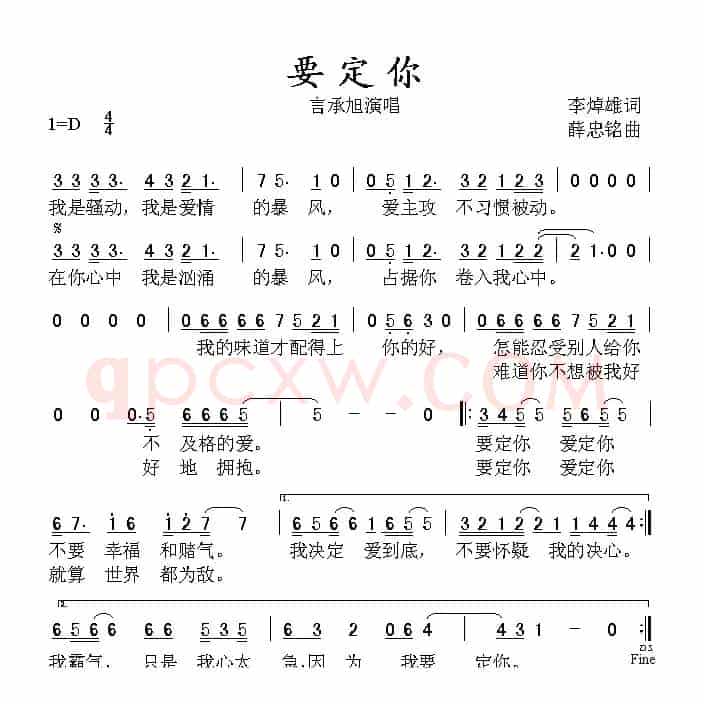 要定你
言承旭演唱
李焯雄词
1=D 4/4
薛忠铭曲
3 3 3 3· 4 3 2 1· | 7 5· 1 0 | 0 5 1 2· 3 2 1 2 3 | 0 0 0 0 |
我是骚动,我是爱情 的暴 风, 爱主攻 不习惯被动。
3 3 3 3· 4 3 2 1· | 7 5· 1 0 | 0 5 1 2· 3 2 1 2 2 | 2 1· 0 0 |
在你心中 我是汹涌 的暴 风, 占据你 卷入我心中。
0 0 0 0 | 0 6 6 6 6 7 5 2 1 | 0 5 6 3 0 | 0 6 6 6 6 7 5 2 1 |
我的味道才配得上 你的好, 怎能忍受别人给你
难道你不想被我好
qpcxw.COM
0 0 0· 5 6 6 6 5 | 5 - - 0 |: 3 4 5 5 5 6 7 5 |
不 及格的爱。 要定你 爱定你
好 地 拥抱。 要定你 爱定你
1.
6 7· 1 6 1 2 7 7 | 0 5 6 5 6 1 6 5 5 | 3 2 1 2 2 2 1 1 4 4 4 :|
不要 幸福 和赌气。 我决定 爱到底, 不要怀疑 我的决心。
就算 世界 都为敌。
2.
6 5 6 6 6 5 5 5 3 5 | 6 1 0 2 0 6 4 | 4 3 1 1 - 0 |
我霸气, 只是 我心太 急,因 为 我要 定你。 Fine